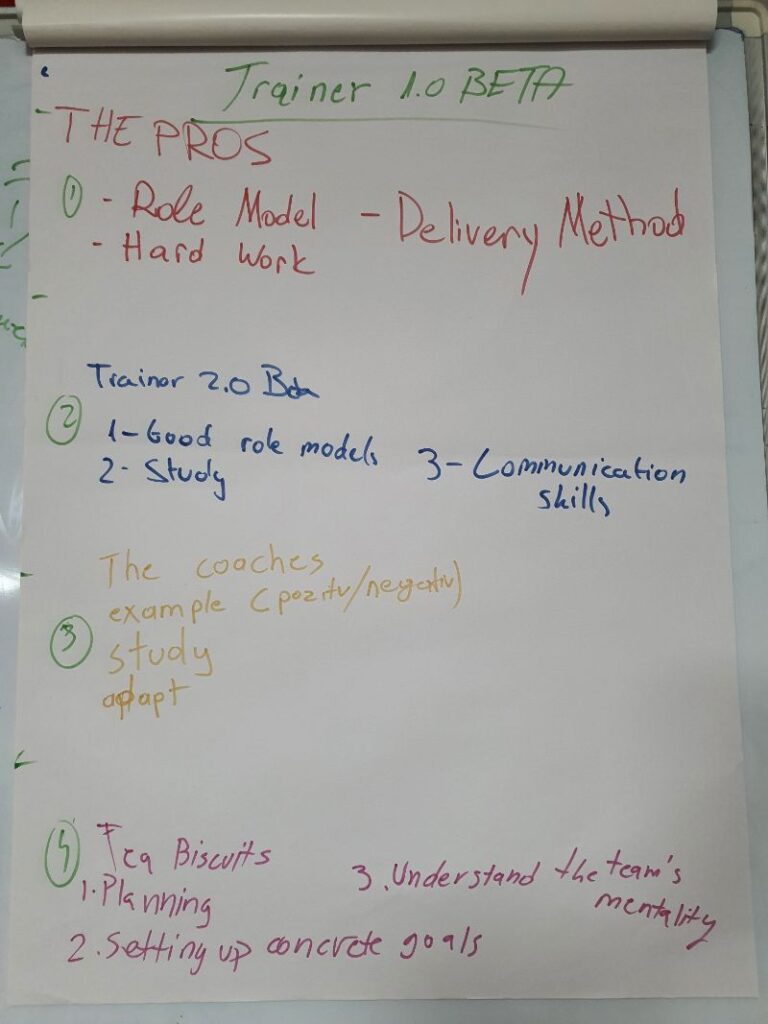 Trainer 1.0 BETA
THE PROS
1 - Role Model - Delivery Method
- Hard Work
Trainor 2.0 Beta
2
1- Good role models
2- Study
3- Communication
skills
The coaches
example (pozitv/negativ)
3
study
adapt
4 Tea Biscuits
1. Planning
3. Understand the team's
mentality
2. Setting up concrete goals